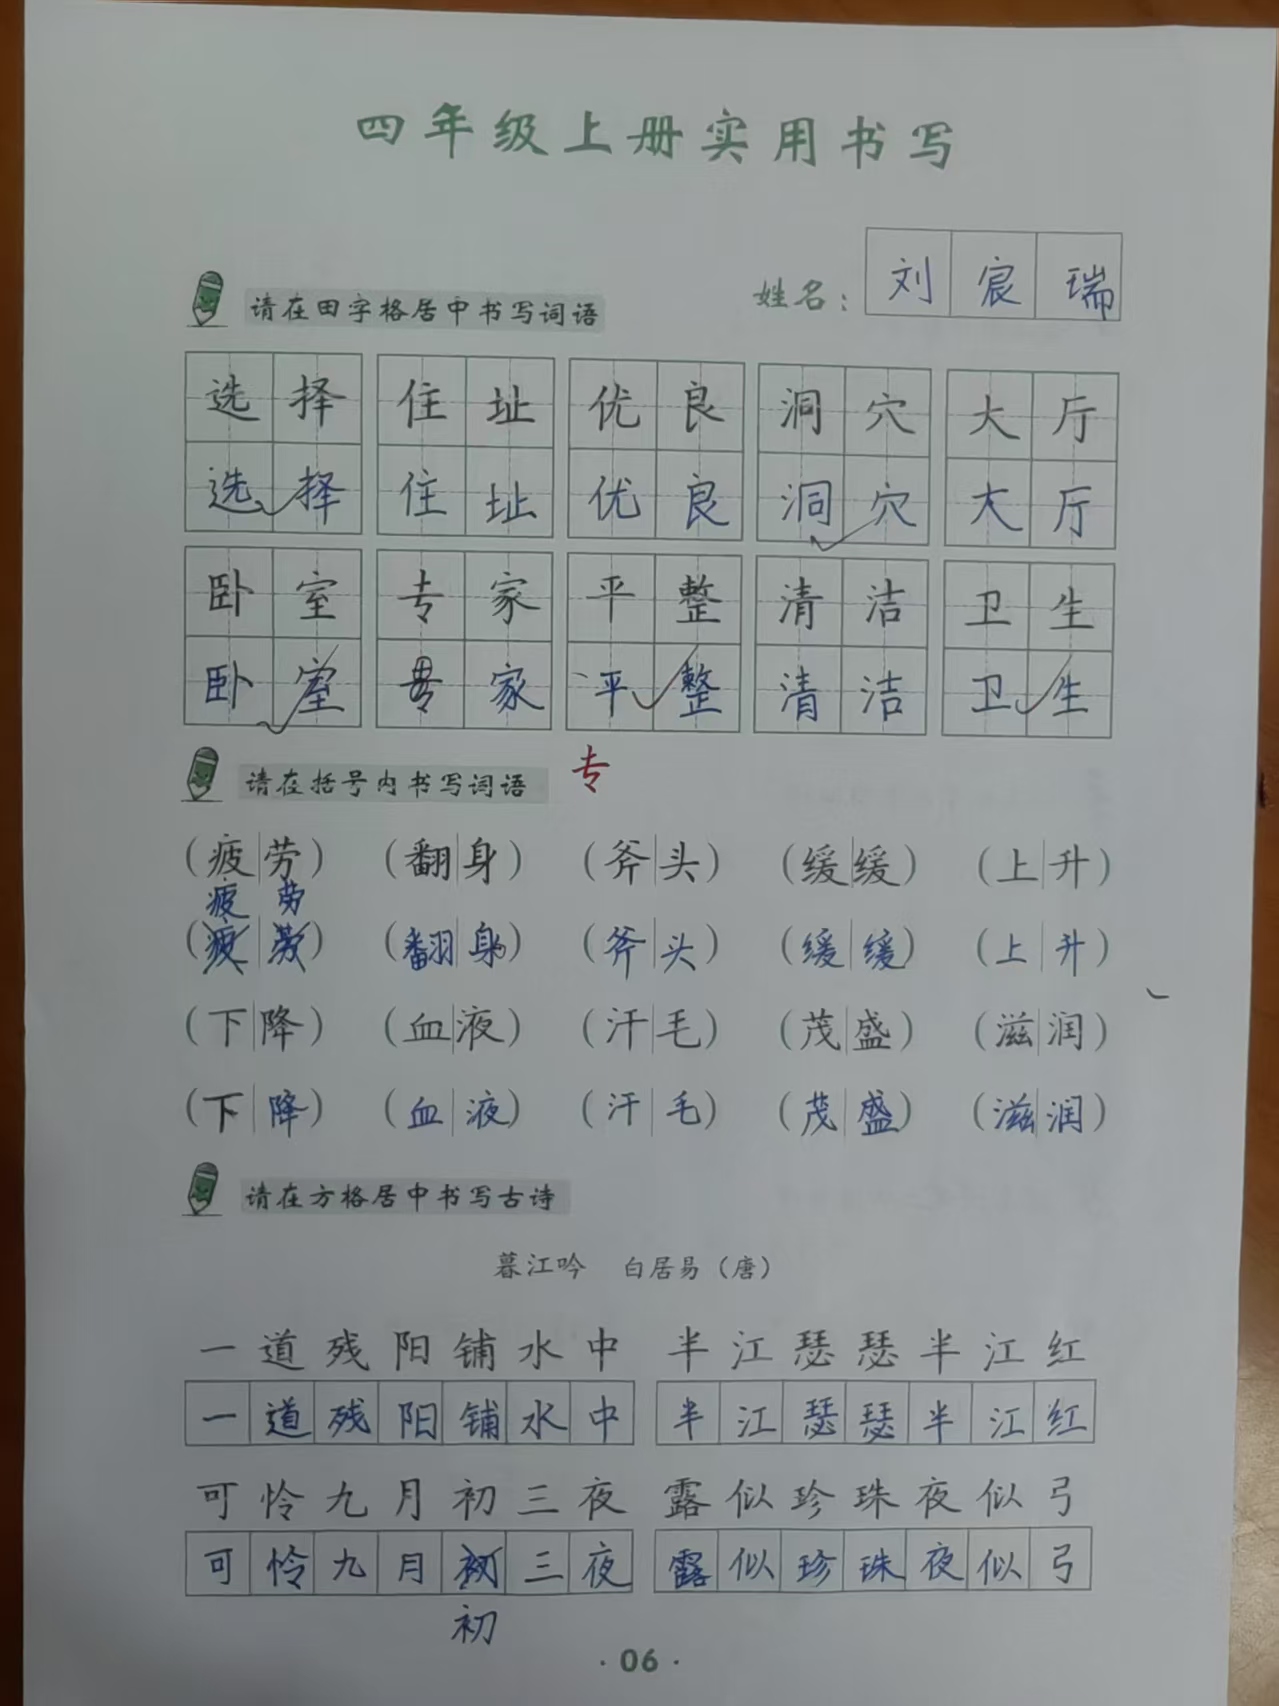 四年级上册实用书写
姓名：刘宸瑞
请在田字格居中书写词语
选择 住址 优良 洞穴 大厅
选择 住址 优良 洞穴 大厅
卧室 专家 平整 清洁 卫生
卧室 家 平整 清洁 卫生
专
请在括号内书写词语
（疲劳）（翻身）（斧头）（缓缓）（上升）
疲劳
（疲劳）（翻身）（斧头）（缓缓）（上升）
（下降）（血液）（汗毛）（茂盛）（滋润）
（下降）（血液）（汗毛）（茂盛）（滋润）
请在方格居中书写古诗
暮江吟 白居易（唐）
一道残阳铺水中 半江瑟瑟半江红
一道残阳铺水中 半江瑟瑟半江红
可怜九月初三夜 露似珍珠夜似弓
可怜九月初三夜 露似珍珠夜似弓
初
·06·